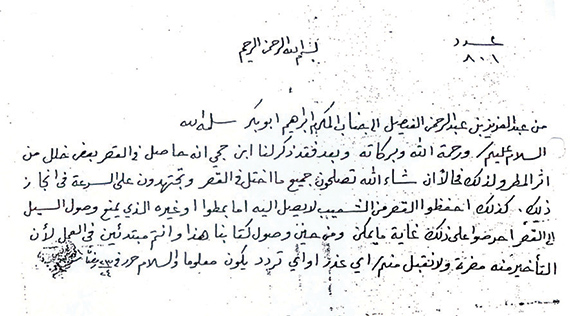 عدد
٨٠١
بسم الله الرحمن الرحيم
من عبد العزيز بن عبد الرحمن الفيصل الى جناب المكرم ابراهيم ابوبكر سلمه الله
السلام عليكم ورحمة الله وبركاته وبعد فقد ذكر لنا ابن جمي انه حاصل في القصر بعض خلل من
اثر المطر ولذلك فالأن شاء الله تصلحون جميع ما اختل في القصر وتجتهدون على السرعة في انجاز
ذلك . كذلك احفظوا القصر من الشعيب لا يصل اليه اما بمطوا او غيره الذي يمنع وصول السيل
الى القصر احرصوا على ذلك غاية ما يمكن ومن حين وصول كتابنا هذا وانتم مبتدئين في العمل لأن
التأخير منه مضرة ولا نقبل منكم اي عذر او اي تردد يكون معلوما والسلام حرر في